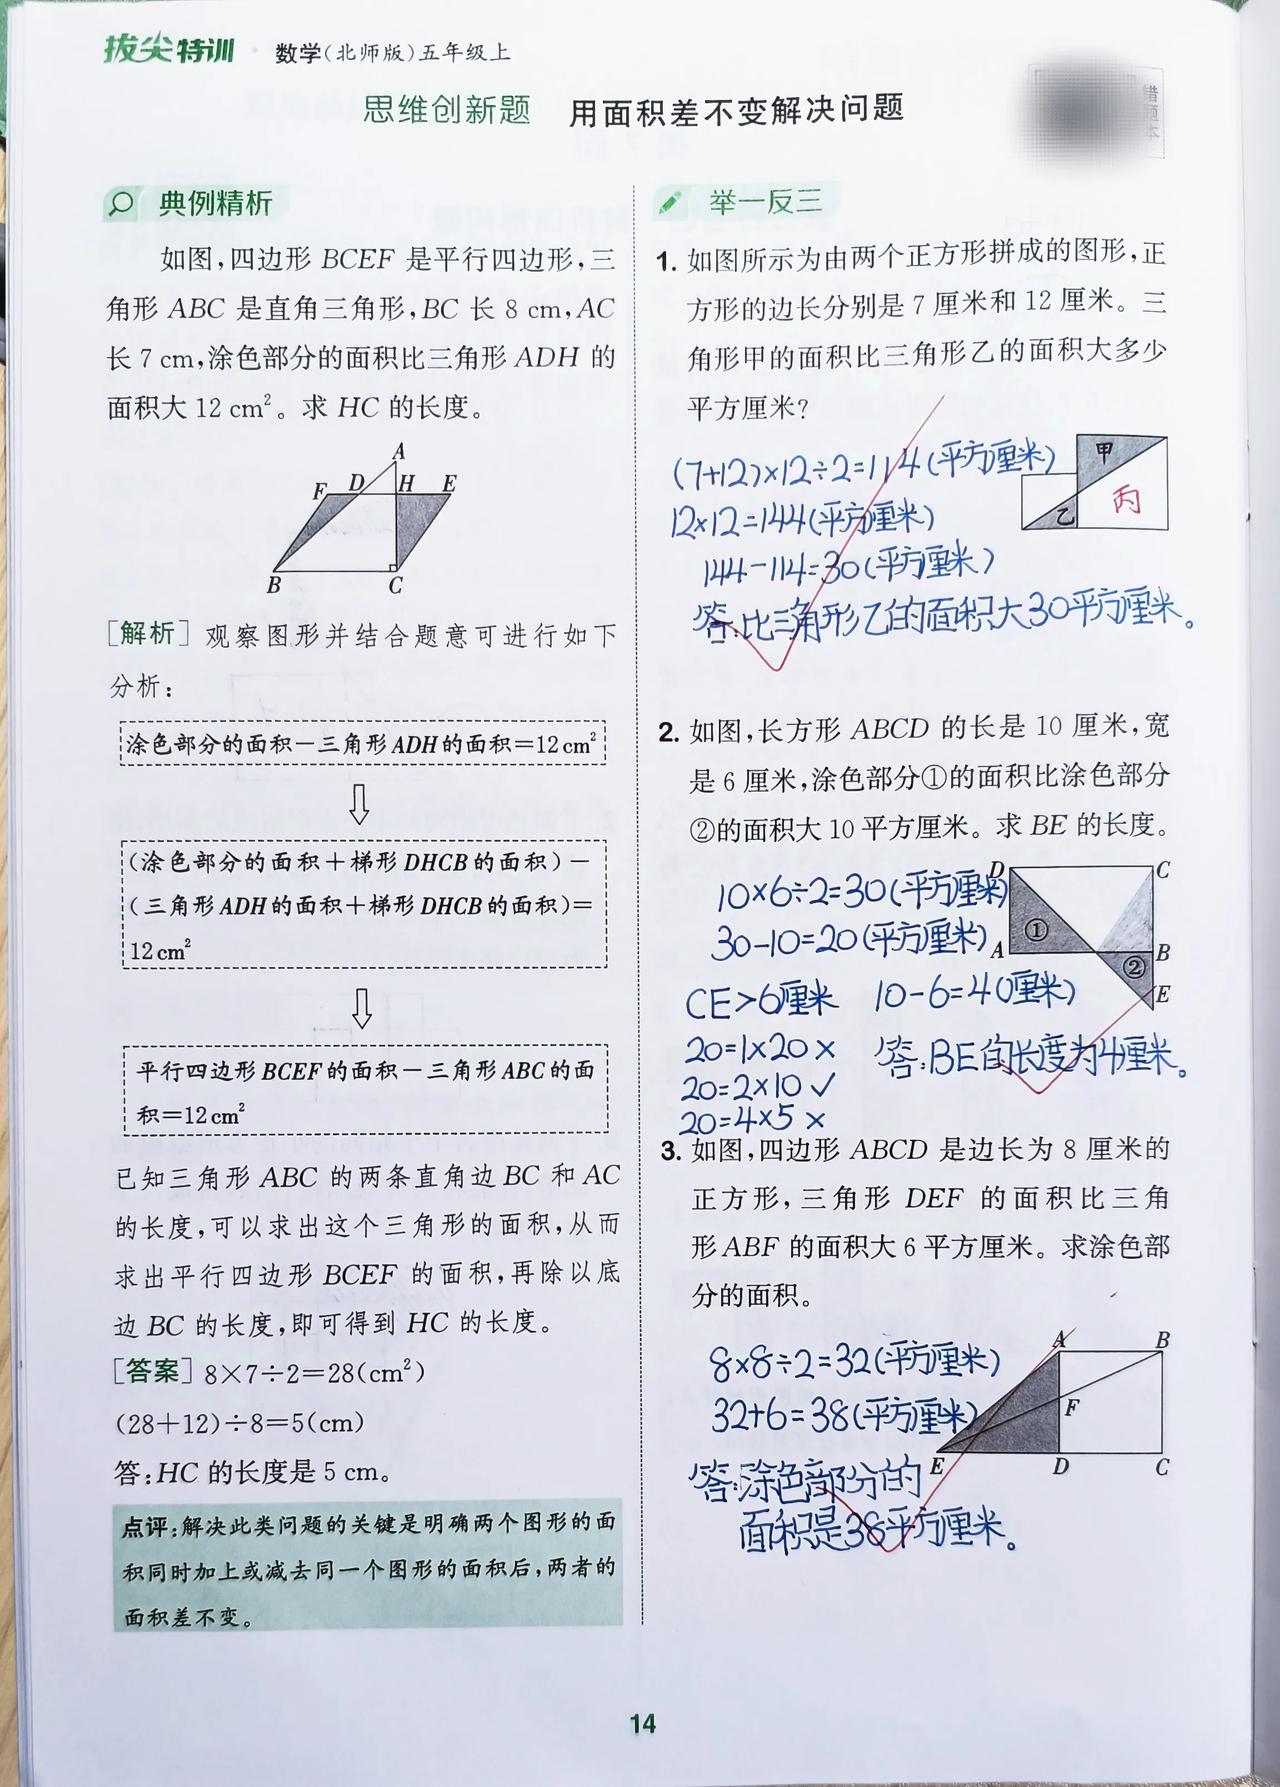 拔尖特训 · 数学(北师版)五年级上
思维创新题 用面积差不变解决问题
错题本
典例精析
如图,四边形 BCEF 是平行四边形,三
角形 ABC 是直角三角形,BC 长 8 cm,AC
长 7 cm,涂色部分的面积比三角形 ADH 的
面积大 12 cm²。求 HC 的长度。
A
F D H E
B C
[解析] 观察图形并结合题意可进行如下
分析:
涂色部分的面积-三角形ADH的面积=12 cm²
(涂色部分的面积+梯形DHCB的面积)-
(三角形ADH的面积+梯形DHCB的面积)=
12 cm²
平行四边形BCEF的面积-三角形ABC的面
积=12 cm²
已知三角形 ABC 的两条直角边 BC 和 AC
的长度,可以求出这个三角形的面积,从而
求出平行四边形 BCEF 的面积,再除以底
边 BC 的长度,即可得到 HC 的长度。
[答案] 8×7÷2=28(cm²)
(28+12)÷8=5(cm)
答:HC 的长度是 5 cm。
点评:解决此类问题的关键是明确两个图形的面
积同时加上或减去同一个图形的面积后,两者的
面积差不变。
举一反三
1. 如图所示为由两个正方形拼成的图形,正
方形的边长分别是 7 厘米和 12 厘米。三
角形甲的面积比三角形乙的面积大多少
平方厘米?
(7+12)×12÷2=114(平方厘米)
12×12=144(平方厘米)
144-114=30(平方厘米)
答:比三角形乙的面积大30平方厘米。
甲
乙
丙
2. 如图,长方形 ABCD 的长是 10 厘米,宽
是 6 厘米,涂色部分①的面积比涂色部分
②的面积大 10 平方厘米。求 BE 的长度。
10×6÷2=30(平方厘米)
30-10=20(平方厘米)
CE>6厘米 10-6=4(厘米)
20=1×20 × 答:BE的长度为4厘米。
20=2×10 ✓
20=4×5 ×
D C
①
A B
②
E
3. 如图,四边形 ABCD 是边长为 8 厘米的
正方形,三角形 DEF 的面积比三角
形 ABF 的面积大 6 平方厘米。求涂色部
分的面积。
8×8÷2=32(平方厘米)
32+6=38(平方厘米)
答:涂色部分的
面积是38平方厘米。
A B
F
E D C
14